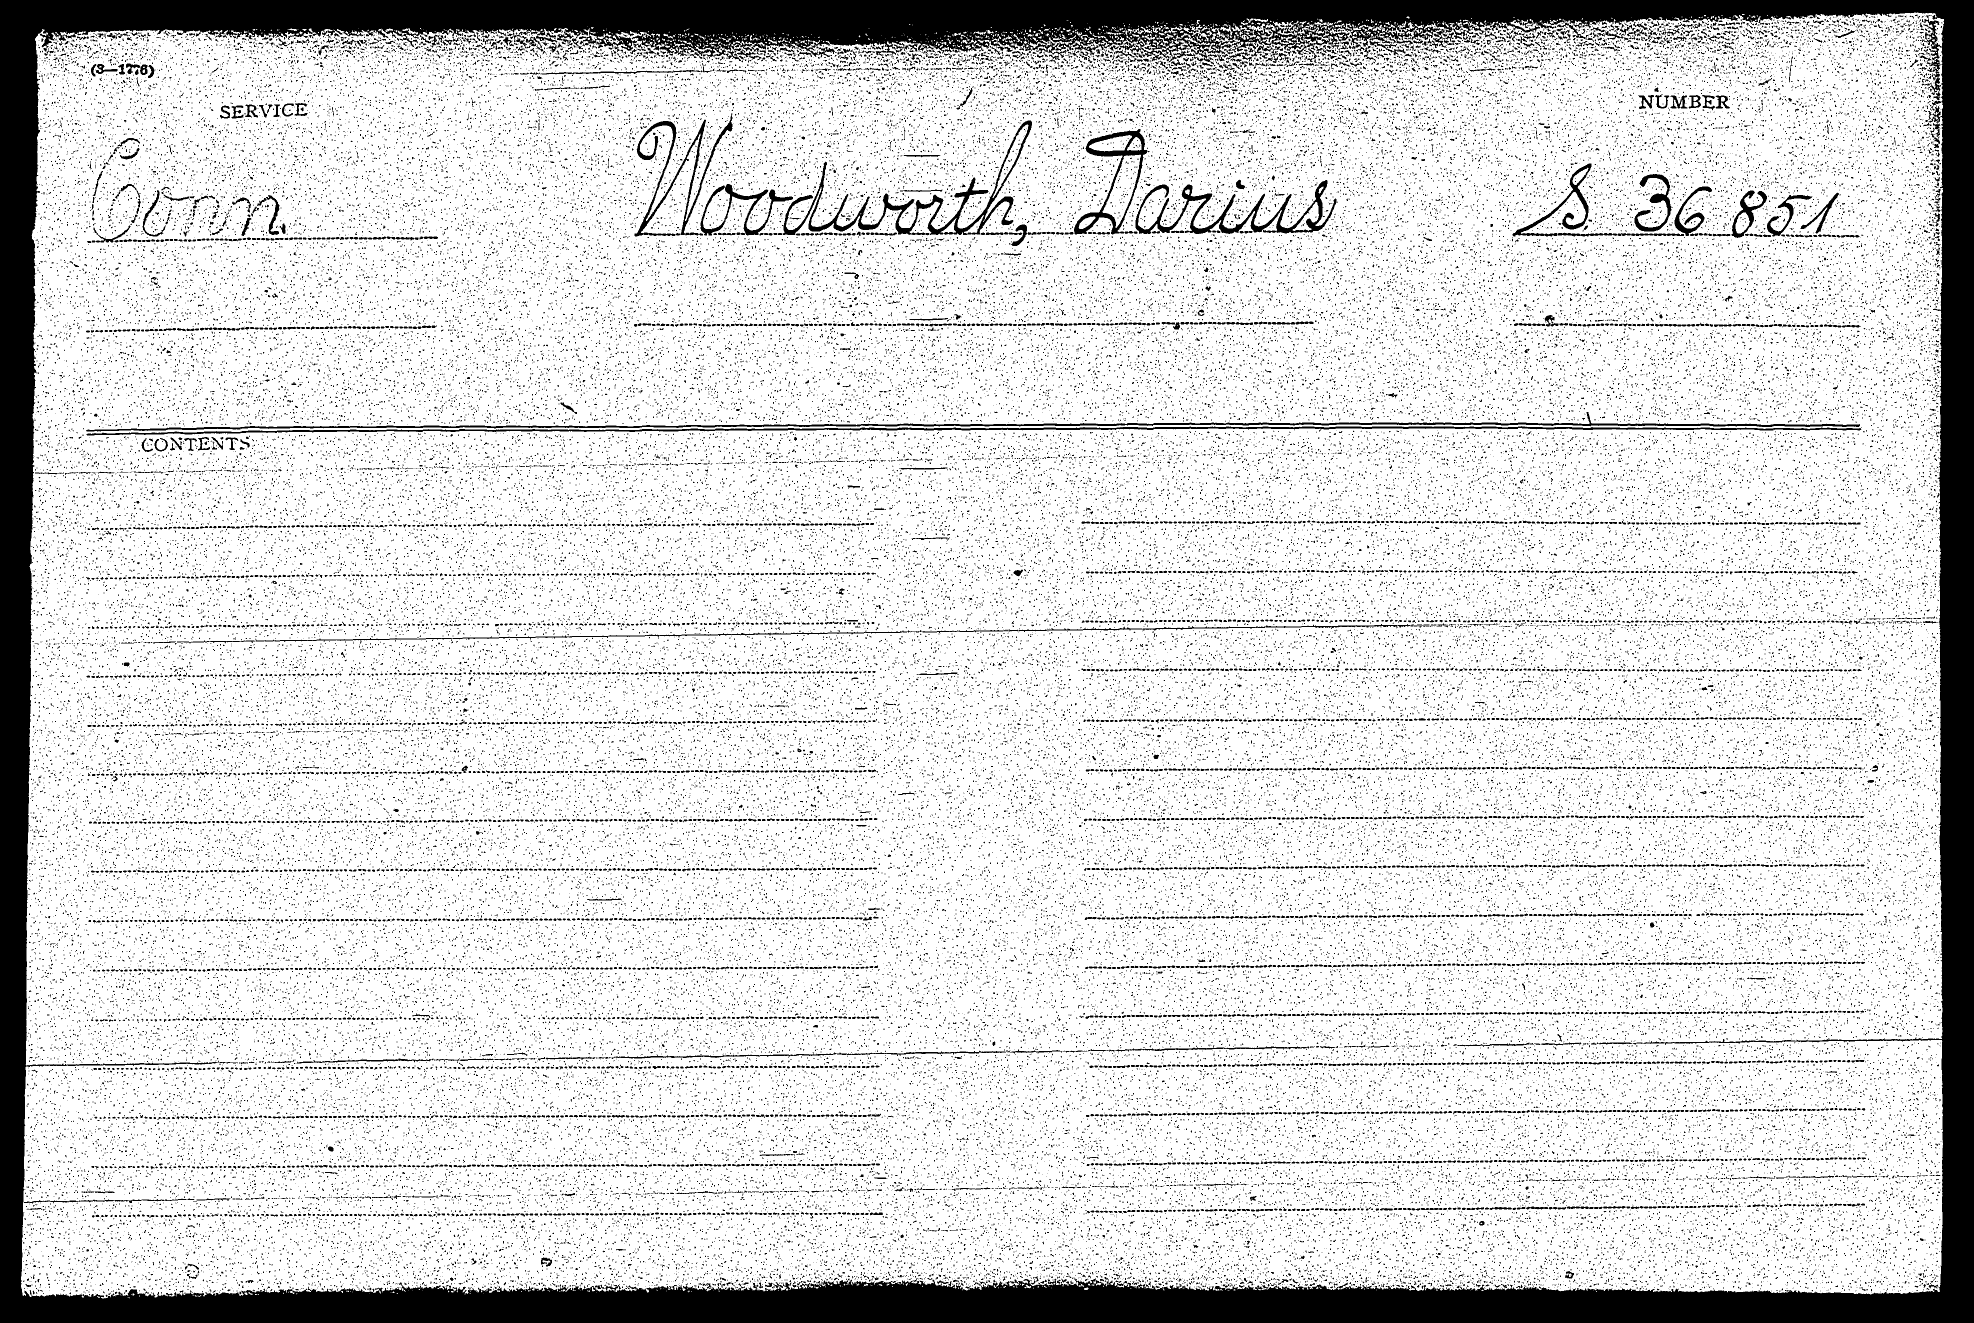 (3—1776)
SERVICE NUMBER
Conn. Woodworth, Darius S. 36 851
CONTENTS